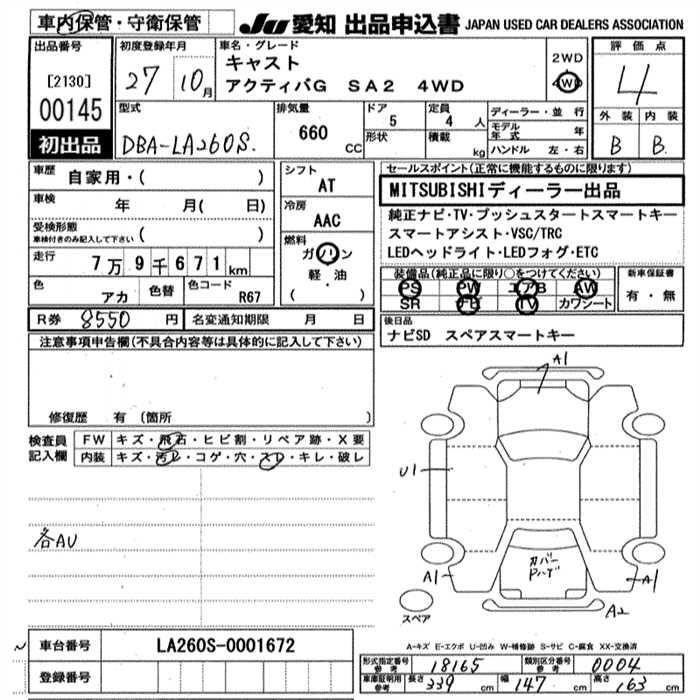 車内保管・守衛保管 JU 愛知 出品申込書 JAPAN USED CAR DEALERS ASSOCIATION
出品番号 [2130] 00145 初出品
初度登録年月 27 10月
車名・グレード キャスト
アクティバG SA2 4WD
2WD
4WD
評価点 4
外装 内装
B B
型式 DBA-LA260S.
排気量 660 CC
ドア 5
形状
定員 4 人
積載 kg
ディーラー・並行
モデル年式 年
ハンドル 左・右
車歴 自家用・( )
車検 年 月( 日)
受検形態
車検付きのみ記入して下さい ( )
走行 7万9千671km
色 アカ 色替 色コード R67
シフト AT
冷房 AAC
燃料
ガソリン
軽・油
( )
セールスポイント(正常に機能するものに限ります)
MITSUBISHIディーラー出品
純正ナビ・TV・プッシュスタートスマートキー
スマートアシスト・VSC/TRC
LEDヘッドライト・LEDフォグ・ETC
装備品(純正品に限り○をつけてください) 新車保証書
PS PW エアB AW 有・無
SR TV カワシート
R券 8550 円 名変通知期限 月 日
後日品
ナビSD スペアスマートキー
注意事項申告欄(不具合内容等は具体的に記入して下さい)
修復歴 有 (箇所 )
検査員記入欄
FW キズ・飛石・ヒビ割・リペア跡・X要
内装 キズ・汚レ・コゲ・穴・スレ・キレ・破レ
各AU
A1
U1
カバー
A1
A1
A2
スペア
A-キズ E-エクボ U-凹み W-補修跡 S-サビ C-腐食 XX-交換済
車台番号 LA260S-0001672
登録番号
形式指定番号 参考 18165 類別区分番号 参考 0004
車庫証明用 参考 長さ 339 cm 幅 147 cm 高さ 163 cm